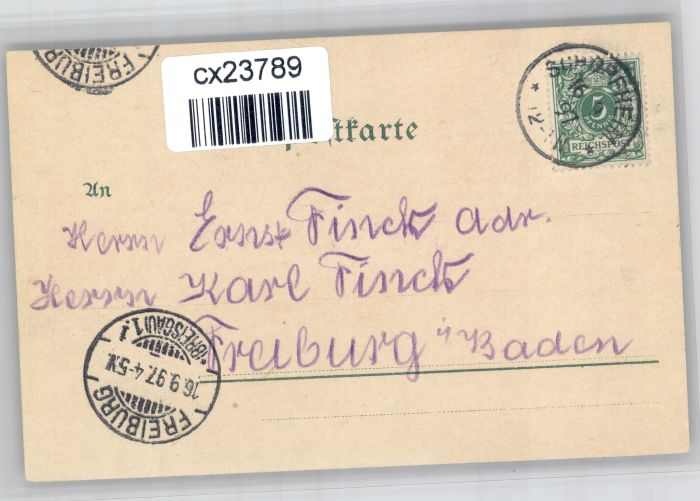 FREIBURG
cx23789
Postkarte
SCHOPFHEIM
16 9 97
12-
5
REICHSPOST
An
Herrn Ernst Finck Adr.
Herrn Karl Finck
Freiburg i/Baden
FREIBURG (BREISGAU) 1. 1
16.9.97.4-5N.